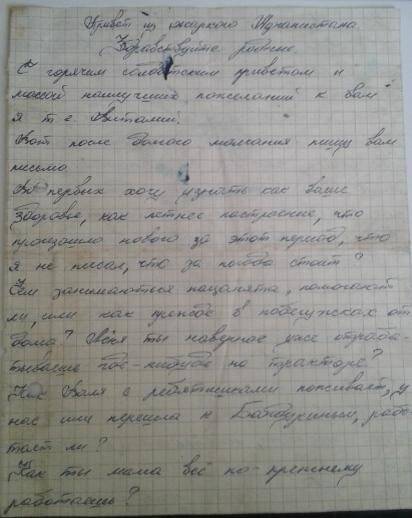 Привет из жаркого Афганистана.
Здравствуйте родные.
С горячим солдатским приветом и
массой наилучших пожеланий к вам
я т.е. Виталий.
Вот после долгого молчания пишу вам
письмо.
Во первых хочу узнать как ваше
здоровье, как летнее настроение, что
произошло нового за этот период, что
я не писал, что за погода стоит?
Чем занимаються пацанята, помогают
ли, или как прежде в побегушках от
дома? Вася ты наверное уже отраба-
тываешь где-нибудь на тракторе?
Как Валя с ребятишками поживает, у
нас или перешла к Бабуриным, рабо-
тает ли?
Как ты мама всё по-прежнему
работаешь?